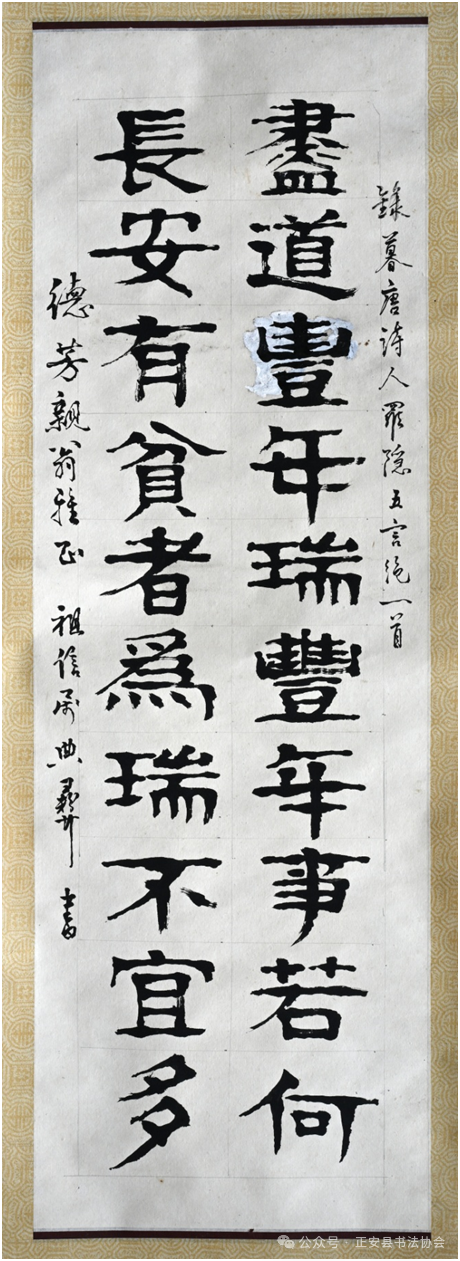 錄暮唐詩人羅隐五言绝一首
盡道豐年瑞豐年事若何
長安有貧者爲瑞不宜多
德芳親翁雅正 祖信屬典彞書
公众号 · 正安县书法协会